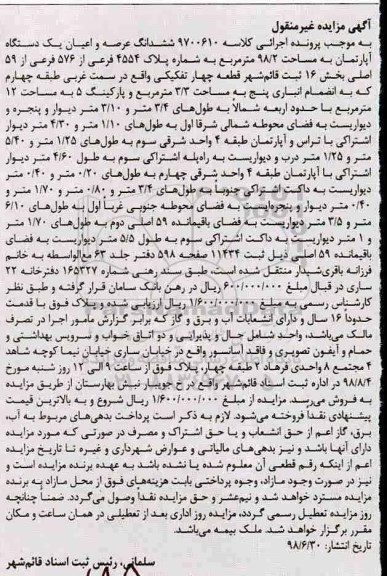 آگهی مزایده غیرمنقول
به موجب پرونده اجرائی کلاسه ۹۷۰۰۶۱۰ ششدانگ عرصه و اعیان یک دستگاه
آپارتمان به مساحت ۹۸/۲ مترمربع به شماره پلاک ۴۵۵۴ فرعی از ۵۷۶ فرعی از ۵۹
اصلی بخش ۱۶ ثبت قائم‌شهر قطعه چهار تفکیکی واقع در سمت غربی طبقه چهارم
که به انضمام انباری پنج به مساحت ۳/۳ مترمربع و پارکینگ ۵ به مساحت ۱۲
مترمربع با حدود اربعه شمالاً به طول‌های ۳/۴ متر و ۳/۱۰ متر دیوار و پنجره و
دیواریست به فضای محوطه شمالی شرقا اول به طول‌های ۱/۱۰ متر و ۴/۳۰ متر دیوار
اشتراکی با تراس و آپارتمان طبقه ۴ واحد شرقی سوم به طول‌های ۱/۲۵ متر و ۵/۴۰
متر و ۱/۲۵ متر درب و دیواریست به راه‌پله اشتراکی سوم به طول ۴/۶۰ متر دیوار
اشتراکی با آپارتمان طبقه ۴ واحد شرقی چهارم به طول‌های ۰/۲۰ متر و ۰/۴۰ متر
دیواریست به داکت اشتراکی جنوباً به طول‌های ۳/۴ متر و ۰/۸۰ متر و ۱/۷۰ متر و
۰/۴۰ متر دیوار و پنجره‌ایست به فضای محوطه جنوبی غرباً اول به طول‌های ۶/۱۰
متر و ۳/۵ متر دیواریست به فضای باقیمانده ۵۹ اصلی دوم به طول‌های ۱/۷۰ متر
و ۱ متر دیواریست به داکت اشتراکی سوم به طول ۵/۵ متر دیواریست به فضای
باقیمانده ۵۹ اصلی ذیل ثبت ۱۱۴۳۴ صفحه ۵۹۸ دفتر جلد ۶۳ مع‌الواسطه به خانم
فرزانه باقری‌شیدار منتقل شده است، طبق سند رهنی شماره ۱۶۵۳۲۷ دفترخانه ۲۲
ساری در قبال مبلغ ۶۰۰/۰۰۰/۰۰۰ ریال در رهن بانک سامان قرار گرفته و طبق نظر
کارشناس رسمی به مبلغ ۱/۶۰۰/۰۰۰/۰۰۰ ریال ارزیابی شده و پلاک فوق با قدمت
حدوداً ۱۶ سال و دارای انشعابات آب و برق و گاز که برابر گزارش مأمور اجرا در تصرف
مالک می‌باشد، واحد شامل حال و پذیرایی و دو اتاق خواب و سرویس بهداشتی و
حمام و آیفون تصویری و فاقد آسانسور واقع در خیابان ساری خیابان نیما کوچه شاهد
۴ مجتمع ۸ واحدی فرهاد ۲ طبقه چهار، پلاک فوق از ساعت ۹ الی ۱۲ روز شنبه مورخ
۹۸/۸/۴ در اداره ثبت اسناد قائم‌شهر واقع در جویبار نبش بهارستان از طریق مزایده
به فروش می‌رسد. مزایده از مبلغ ۱/۶۰۰/۰۰۰/۰۰۰ ریال شروع و به بالاترین قیمت
پیشنهادی نقداً فروخته می‌شود. لازم به ذکر است پرداخت بدهی‌های مربوط به آب،
برق، گاز اعم از حق انشعاب و یا حق اشتراک و مصرف در صورتی که مورد مزایده
دارای آنها باشد و نیز بدهی‌های مالیاتی و عوارض شهرداری و غیره تا تاریخ مزایده
اعم از اینکه رقم قطعی آن معلوم شده یا نشده باشد به عهده برنده مزایده است و
نیز در صورت وجود مازاد، وجوه پرداختی بابت هزینه‌های فوق از محل مازاد به برنده
مزایده مسترد خواهد شد و نیم‌عشر و حق مزایده نقداً وصول می‌گردد. ضمناً چنانچه
روز مزایده تعطیل رسمی گردد، مزایده روز اداری بعد از تعطیلی در همان ساعت و مکان
مقرر برگزار خواهد شد. ملک بیمه می‌باشد.
تاریخ انتشار: ۹۸/۶/۳۰
سلمانی، رئیس ثبت اسناد قائم‌شهر